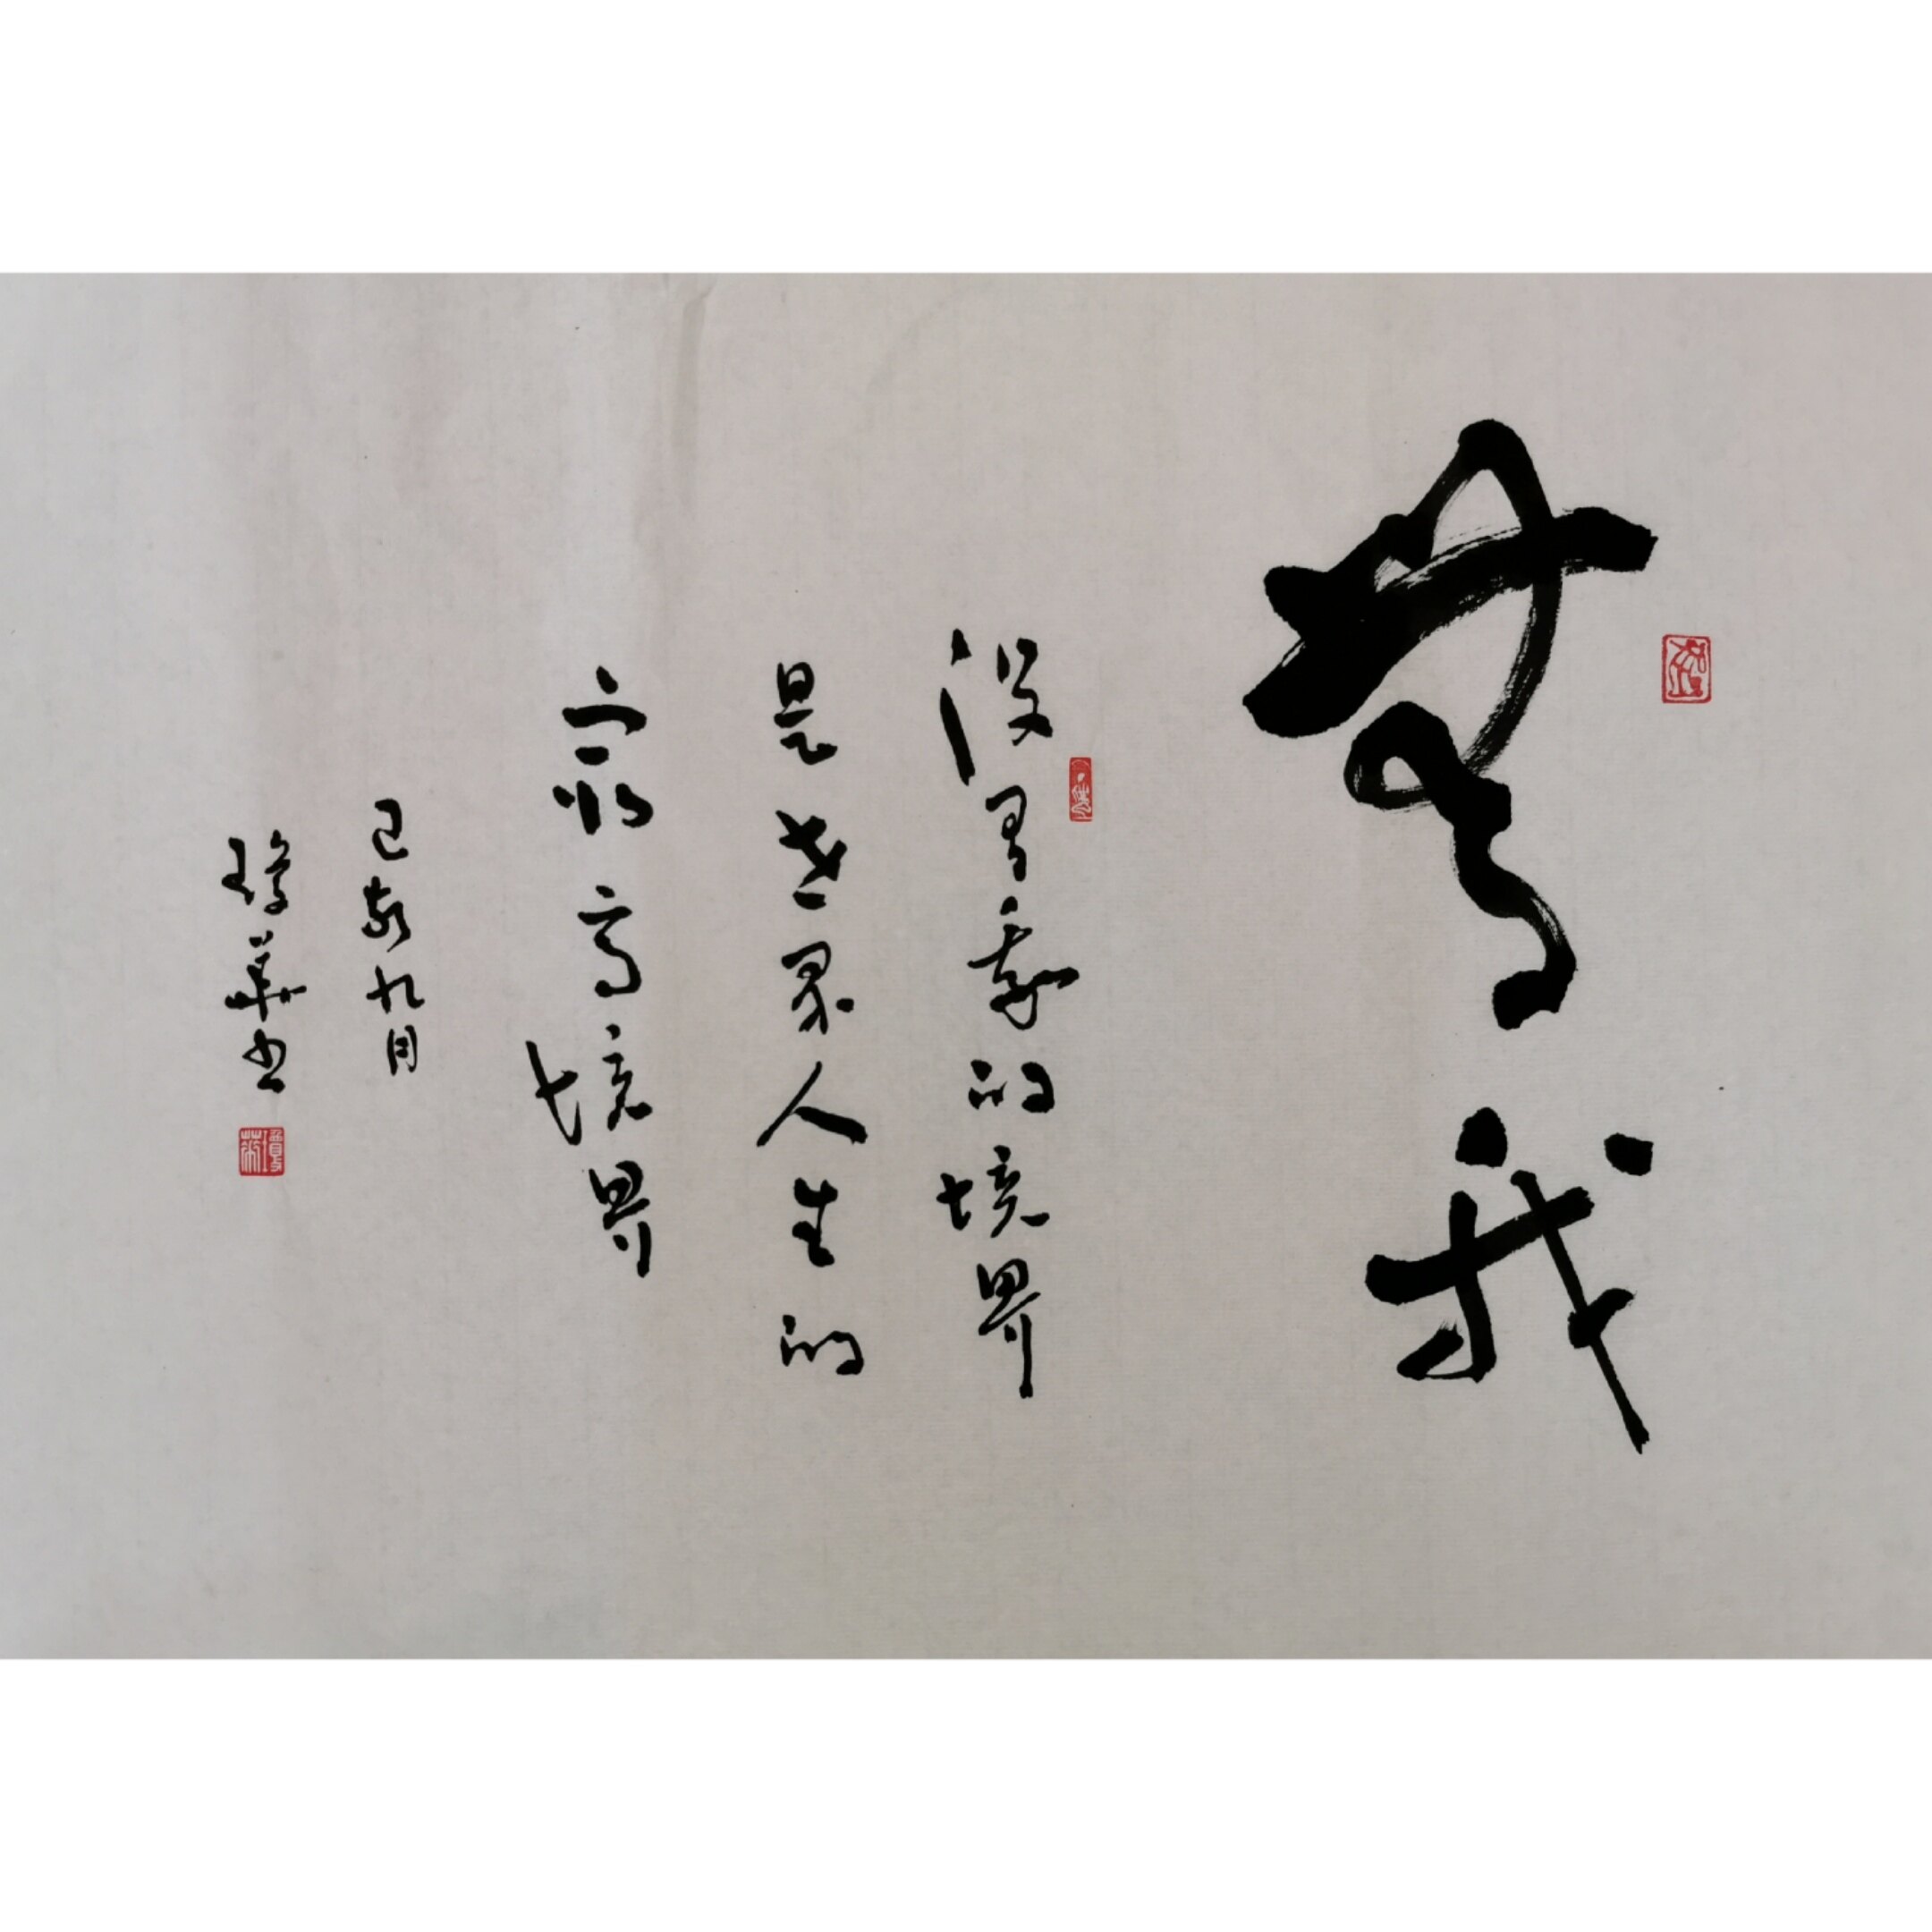 無我
没有我的境界
是世界人生的
最高境界
己亥九月
瓊華书